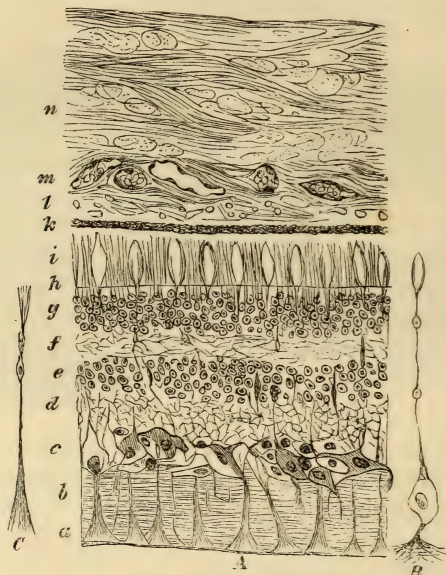 n
m
l
k
i
h
g
f
e
d
c
b
a
C
A
B